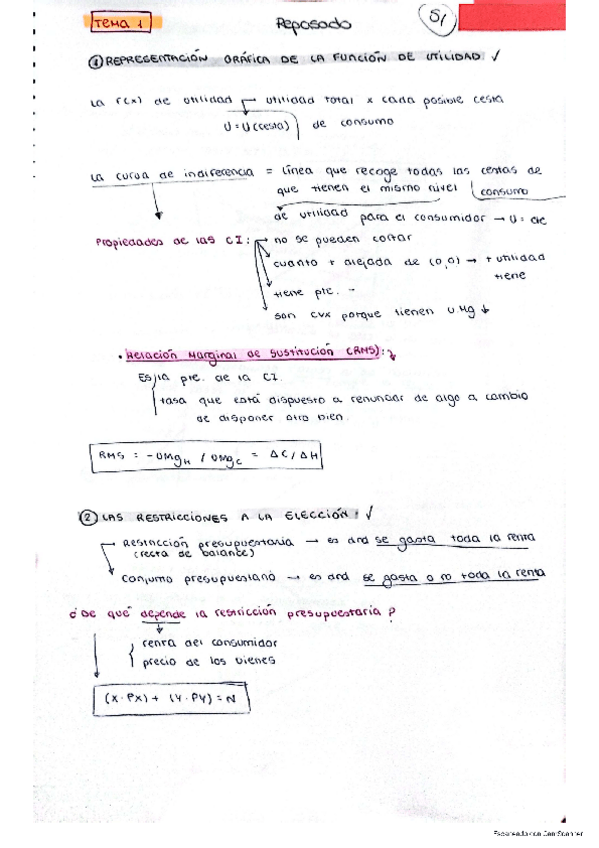 TEMA 1
Reposado
S1
① REPRESENTACIÓN GRÁFICA DE LA FUNCIÓN DE UTILIDAD: ✓
La F(x) de utilidad → utilidad total x cada posible cesta
U = U(cesta) de consumo
La curva de indiferencia = línea que recoge todas las cestas de
que tienen el mismo nivel consumo
de utilidad para el consumidor → U = cte
Propiedades de las CI: → no se pueden cortar
cuanto + alejada de (0,0) → + utilidad
tiene
tiene pte. -
son cvx porque tienen UMg ↓
• Relación Marginal de Sustitución (RMS):
Es la pte. de la CI.
tasa que está dispuesto a renunciar de algo a cambio
de disponer otro bien.
RMS = -UMgH / UMgC = ΔC/ΔH
② LAS RESTRICCIONES A LA ELECCIÓN: ✓
Restricción presupuestaria → es dnd se gasta toda la renta
(recta de balance)
Conjunto presupuestario → es dnd se gasta o no toda la renta
¿De qué depende la restricción presupuestaria?
renta del consumidor
precio de los bienes
(X · PX) + (Y · PY) = N
Escaneado con CamScanner